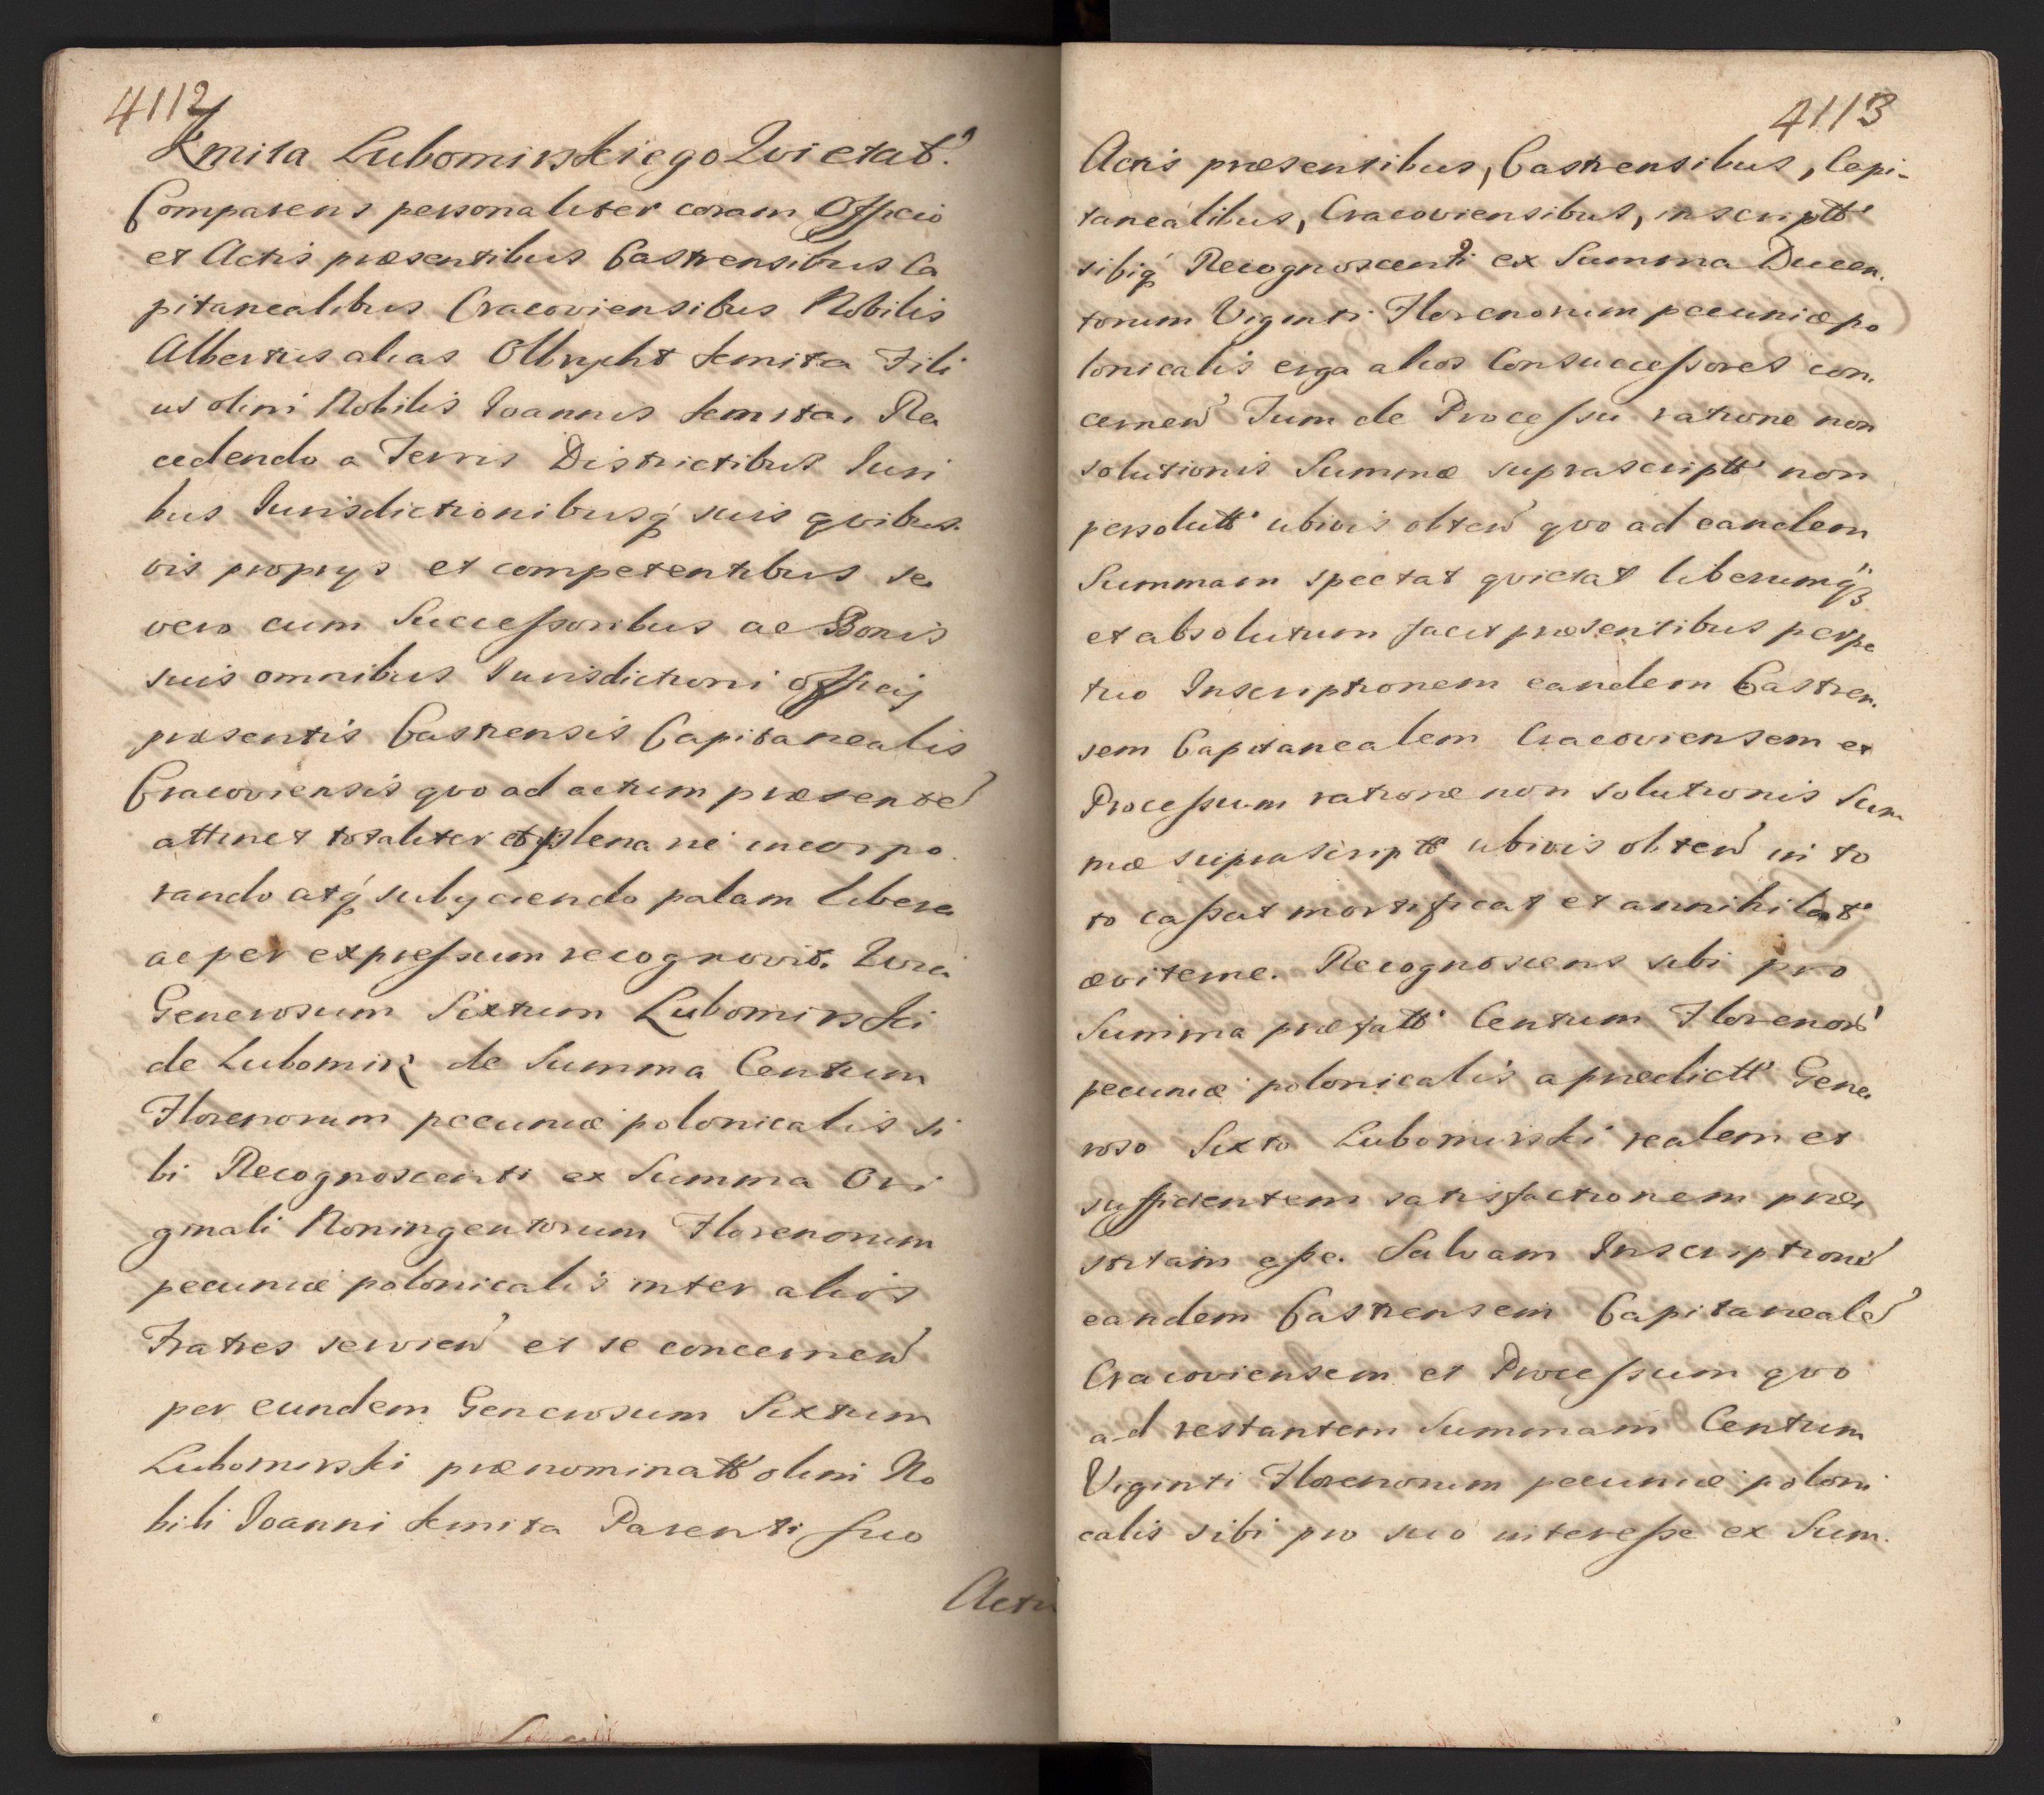 4112
Kmita Lubomirskiego Qvietat.
Comparens personaliter coram Officio
et Actis præsentibus Castrensibus Ca
pitanealibus Cracoviensibus Nobilis
Albertus alias Olbrycht Kmita Fili
us olim Nobilis Joannis Kmita. Re
cedendo a Terris Districtibus Juri
bus Jurisdictionibusq́ suis qvibus
vis proprys et competentibus se
vero cum Successoribus ac Bonis
suis omnibus Jurisdictioni officij
præsentis Castrensis Capitanealis
Cracoviensis qvo ad actum præsente
attinet totaliter et plena rie incorpo
rando atq́ subyciendo palam libere
ac per expressum recognovit. Qvia
Generosum Sixtum Lubomirski
de Lubomirz de Summa Centum
Florenorum pecuniæ polonicalis si
bi Recognoscenti ex Summa Ori
ginali Noningentorum Florenorum
pecuniæ polonicalis inter alios
Fratres servien et se concernen
per eundem Generosum Sixtum
Lubomirski prænominatt olim No
bili Joanni Kmita Parenti suo
Actis
4113
Actis præsentibus, Castrensibus, Capi-
tanealibus, Cracoviensibus, inscriptt
sibiq́ Recognoscenti ex Summa Ducen.
torum Viginti Florenorum pecuniæ po
lonicalis erga alios Consuccessores con.
cernen Tum de Processu ratione non
solutionis Summæ suprascriptt non
persolutt ubivis obten qvo ad eandem
Summam spectat qvietat liberumq́3
et absolutum facit præsentibus perpe
tuo Inscriptionem eandem Castren.
sem Capitanealem Cracoviensem et
Processum ratione non solutionis Sum
mæ suprascriptt ubivis obten in to
to cassat mortificat et annihilat
æviterne. Recognoscens sibi pro
Summa præfatt Centum Florenor
pecuniæ polonicalis a prædictt Gene
roso Sixto Lubomirski realem et
sufficientem satisfactionem præ
stitam esse. Salvam Inscriptione
eandem Castrensem Capitaneale
Cracoviensem et Processum qvo
ad restantem Summam Centum
Viginti Florenorum pecuniæ poloni
calis sibi pro suo interesse ex Sum.